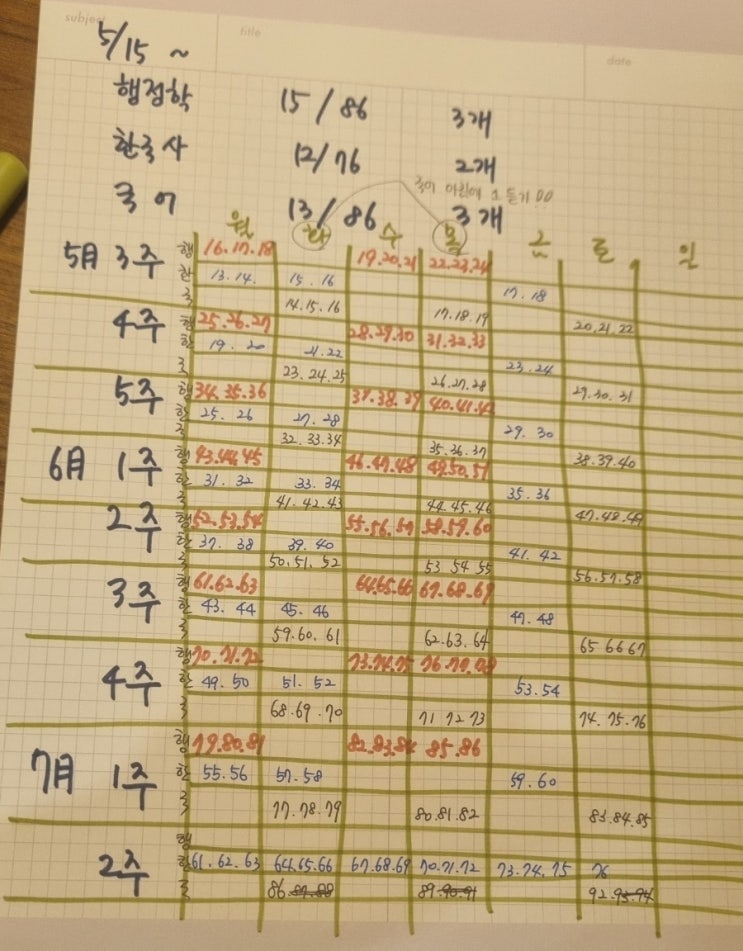 subject
title
date
5/15 ~
행정학 15 / 86 3개
한국사 12/76 2개
국어 13/86 3개
월 화 수 목 금 토 일
5月 3주 행 16.17.18 19.20.21 22.23.24
한 13.14. 15.16 17.18
국 14.15.16 17.18.19 20.21.22
4주 행 25.26.27 28.29.30 31.32.33
한 19. 20 21.22 23.24
국 23.24.25 26.27.28 29.30.31
5주 행 34.35.36 37.38.39 40.41.42
한 25. 26 27. 28 29. 30
국 32.33.34 35.36.37 38.39.40
6月 1주 행 43.44.45 46.47.48 49.50.51
한 31. 32 33. 34 35.36
국 41.42.43 44.45.46 47.48.49
2주 행 52.53.54 55.56.57 58.59.60
한 37. 38 39.40 41.42
국 50.51.52 53 54 55 56.57.58
3주 행 61.62.63 64.65.66 67.68.69
한 43. 44 45. 46 47.48
국 59.60.61 62.63.64 65 66 67
4주 행 70.71.72 73.74.75 76.77.78
한 49.50 51. 52 53.54
국 68.69.70 71 72 73 74.75.76
7月 1주 행 79.80.81 82.83.84 85.86
한 55.56 57.58 59.60
국 77.78.79 80.81.82 83.84.85
2주 행
한 61.62.63 64.65.66 67.68.69 70.71.72 73.74.75 76
국 86 87.88 89.90.91 92.93.94